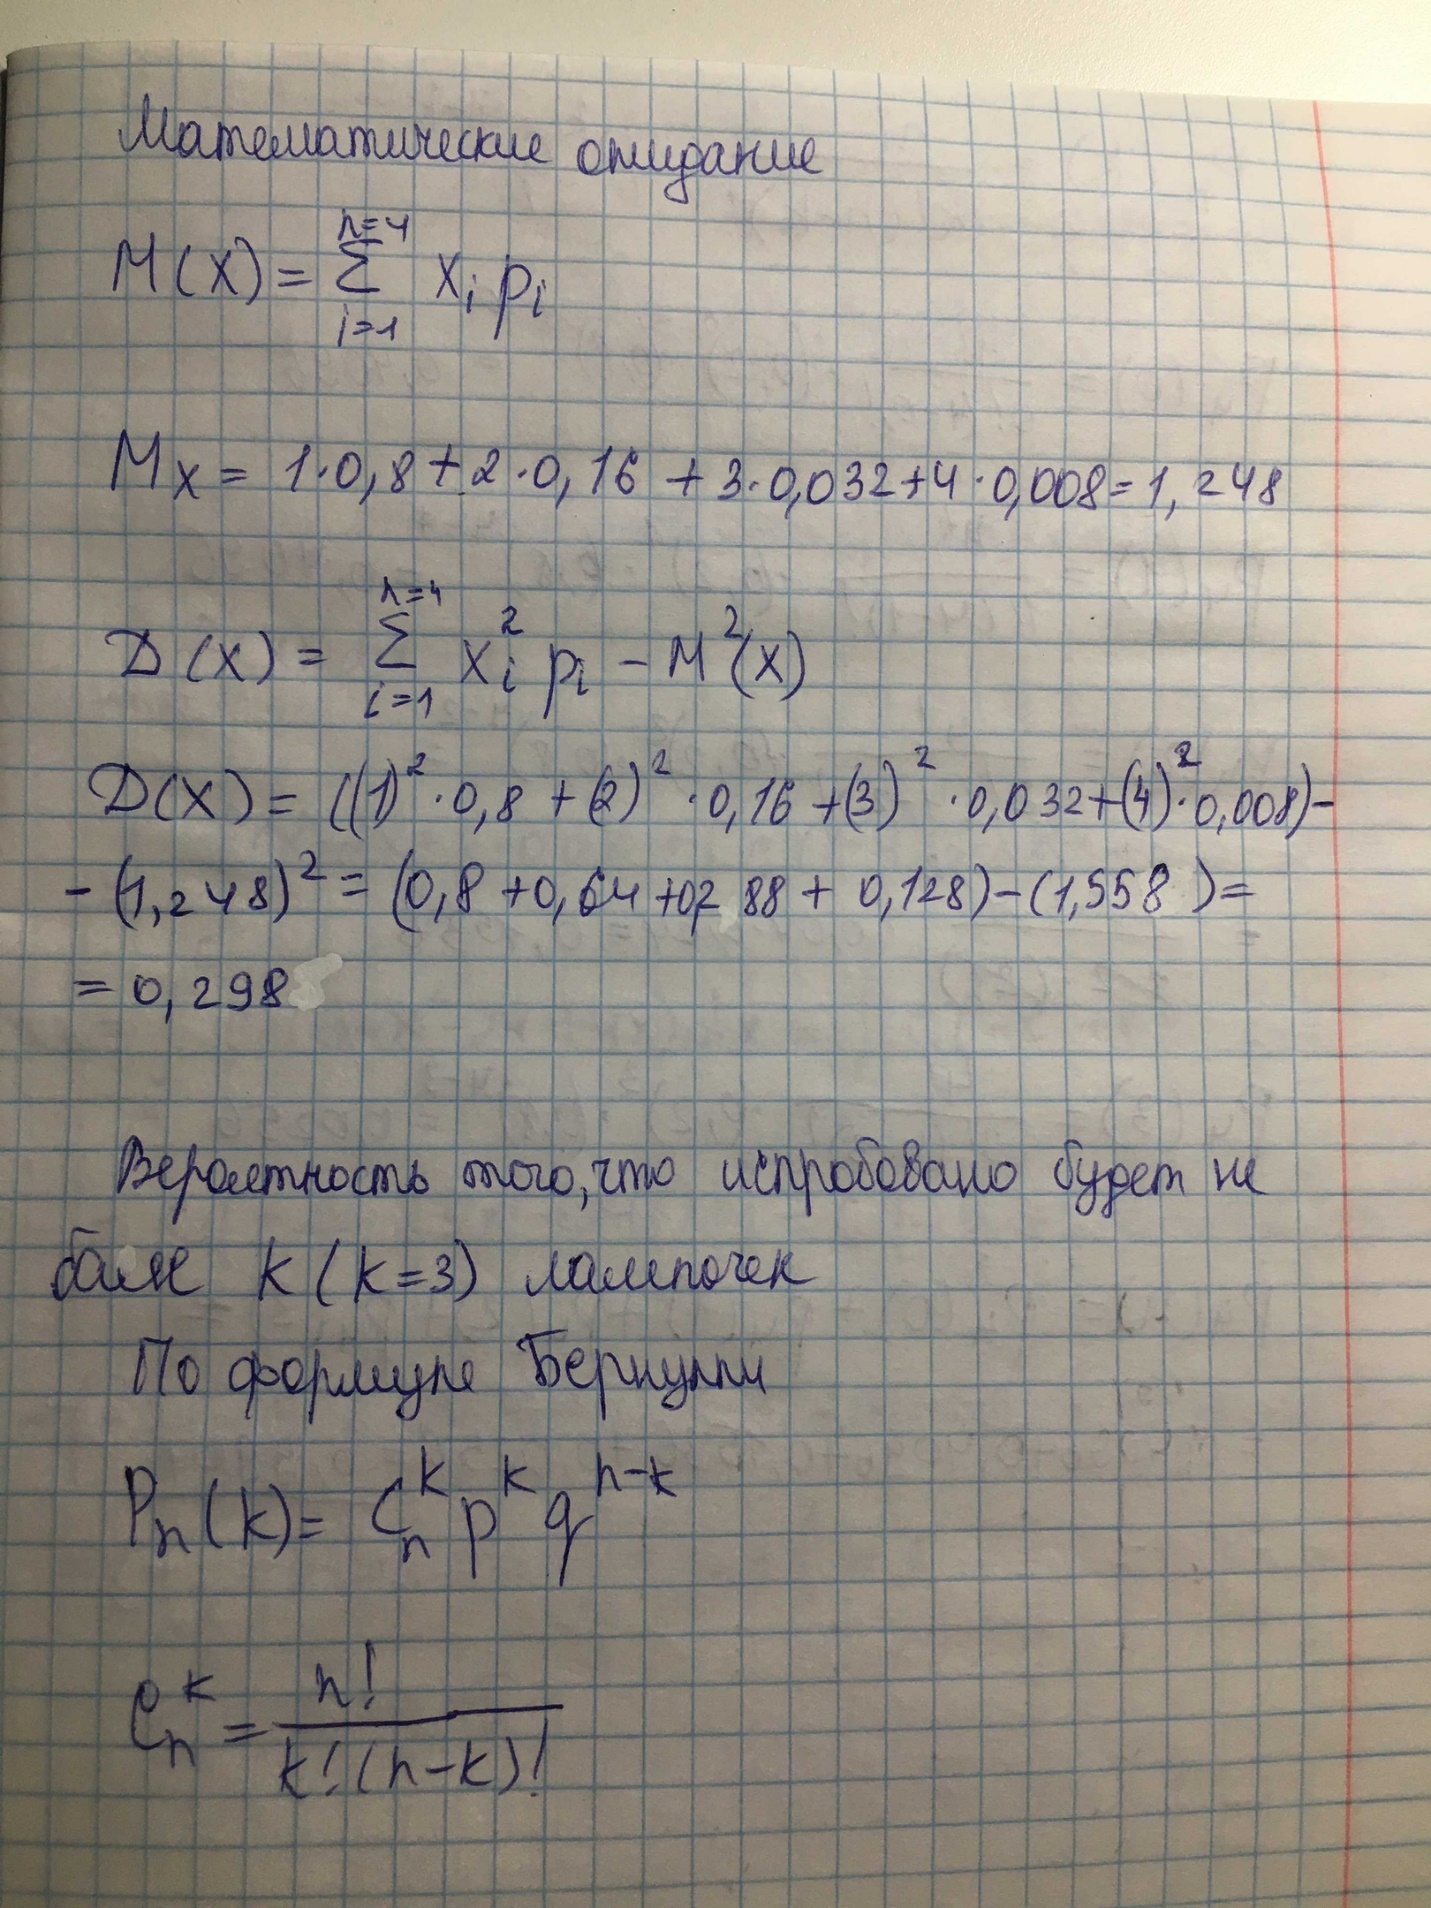 Математические ожидание
M(X) = \sum_{i=1}^{n=4} x_i p_i
Mx = 1·0,8 + 2·0,16 + 3·0,032 + 4·0,008 = 1,248
D(X) = \sum_{i=1}^{n=4} x_i^2 p_i - M^2(X)
D(X) = ((1)^2·0,8 + (2)^2·0,16 + (3)^2·0,032 + (4)^2·0,008) -
- (1,248)^2 = (0,8 + 0,64 + 0,288 + 0,128) - (1,558) =
= 0,298
Вероятность того, что испробовано будет не
более k (k=3) лампочек
По формуле Бернулли
P_n(k) = C_n^k p^k q^{n-k}
C_n^k = \frac{n!}{k!(n-k)!}